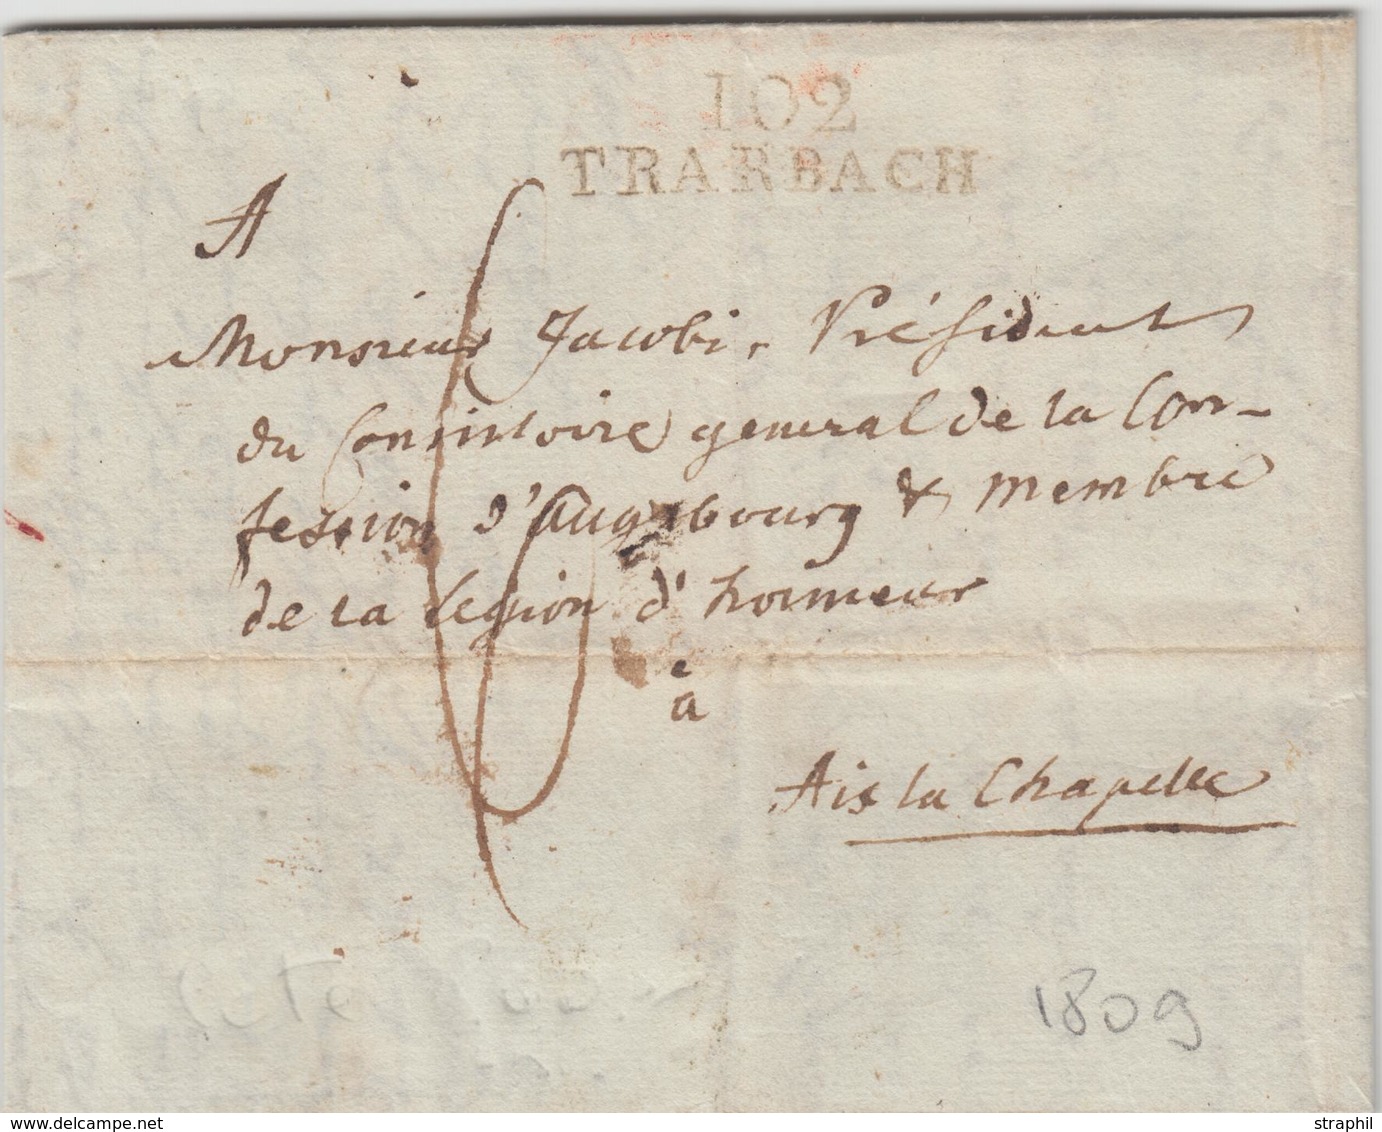 102
TRARBACH
A
Monsieur Jacobi, Président
du Consistoire general de la Con-
fession d'Augsbourg & membre
de la Legion d'honneur
à
Aix la Chapelle
6
1809
www.delcampe.net
straphil